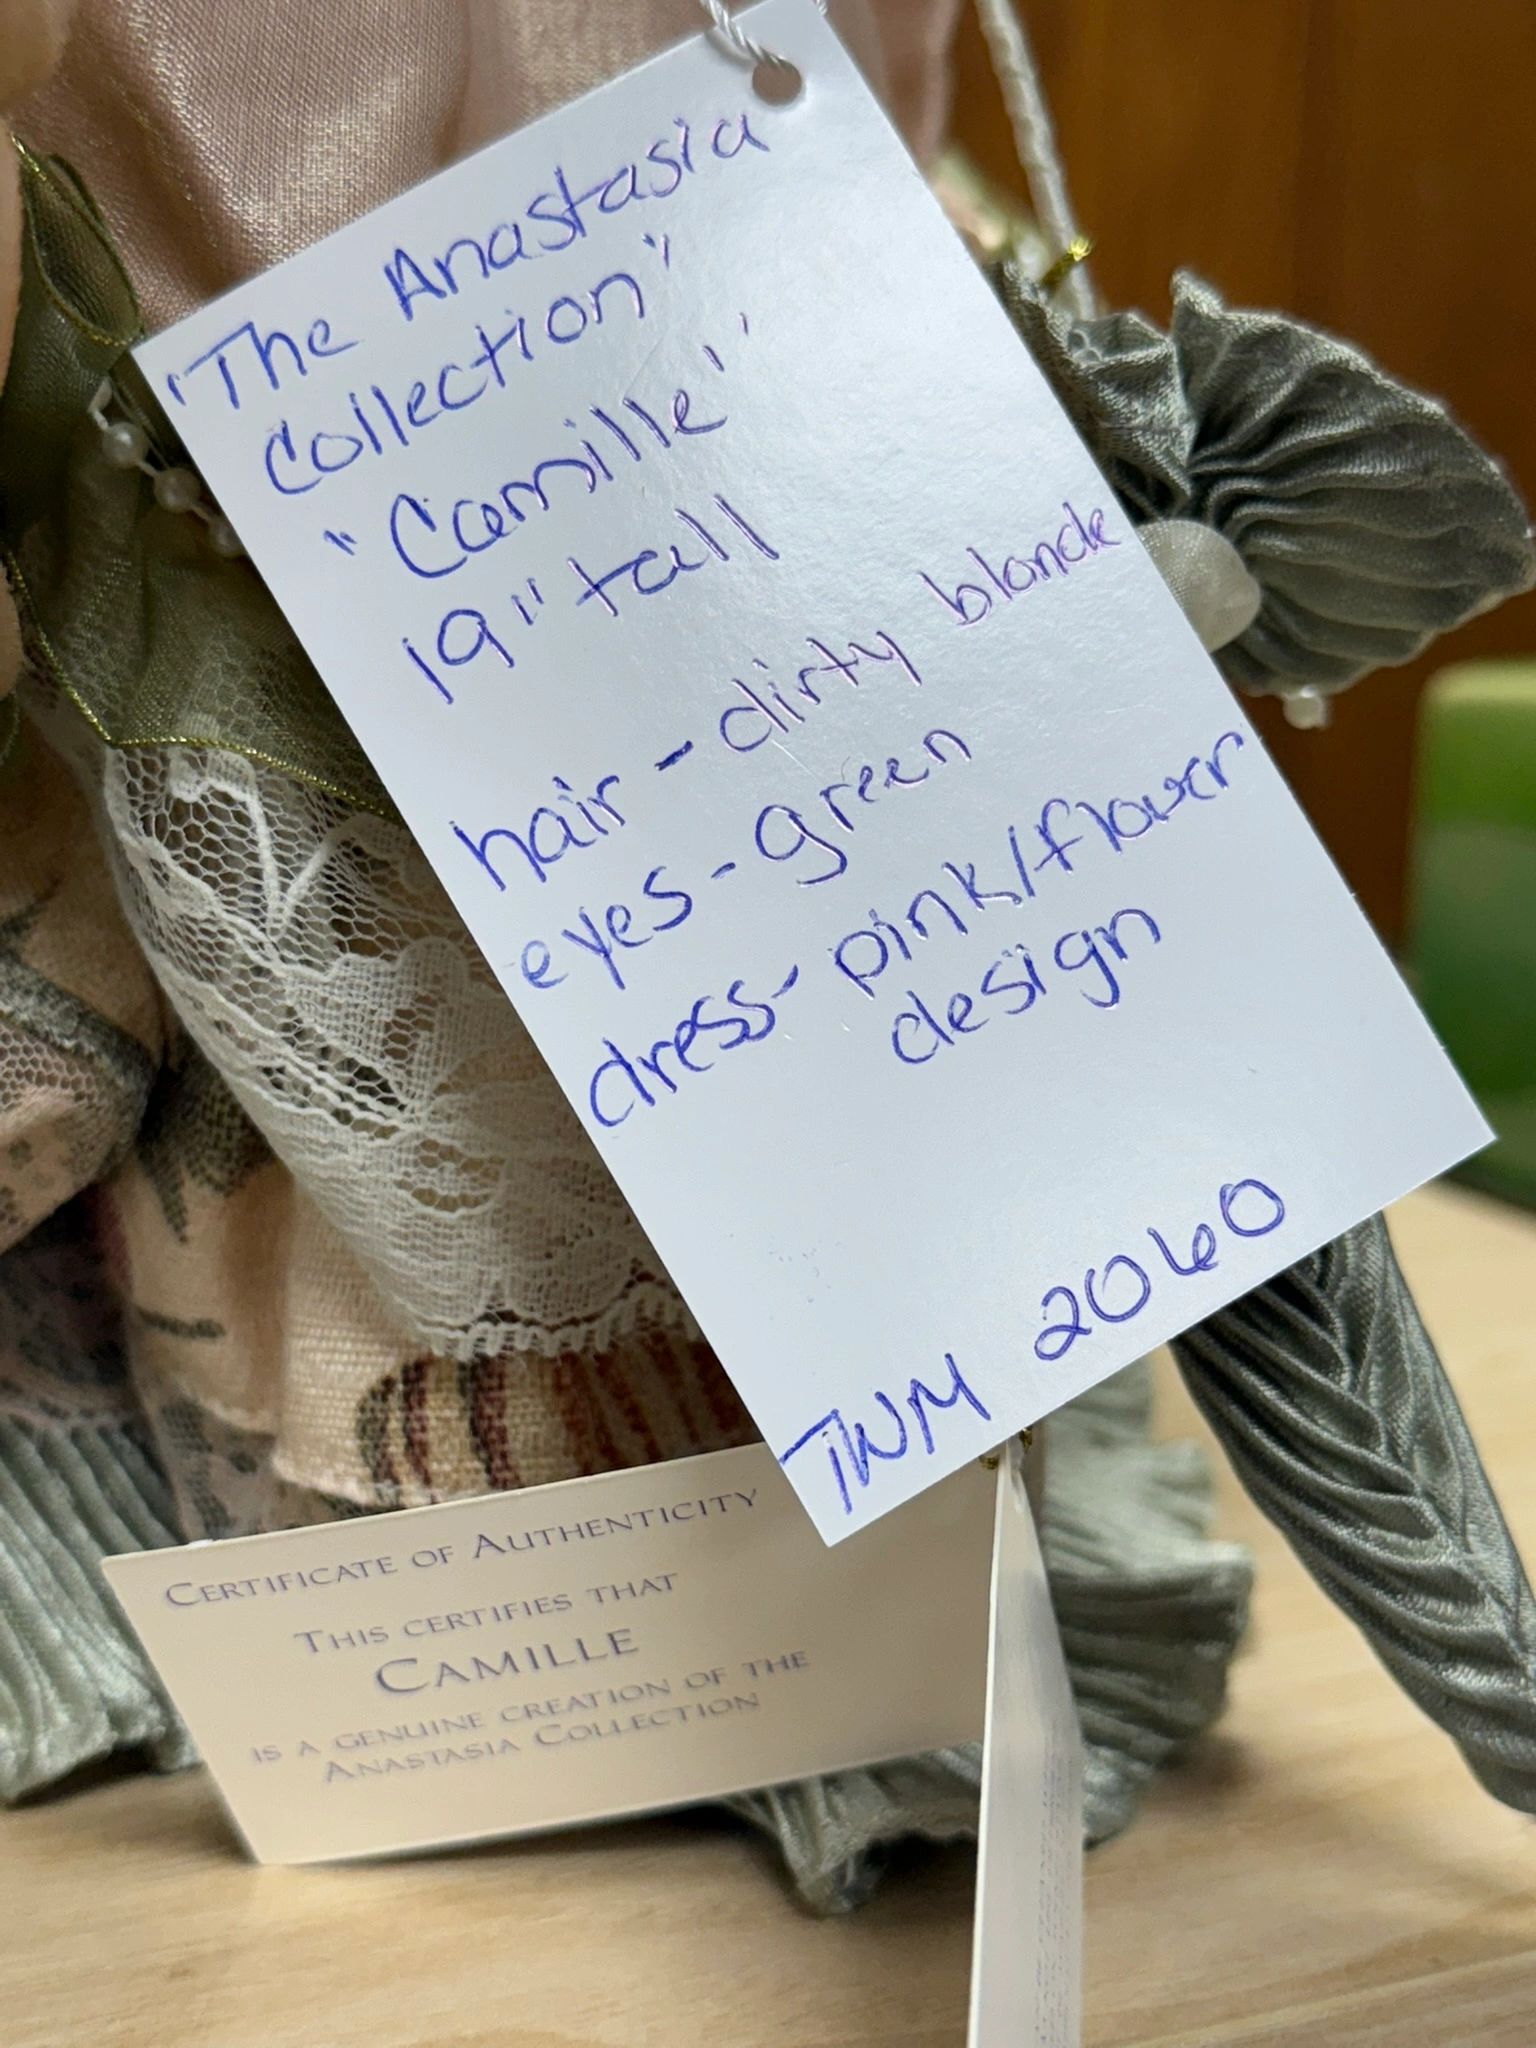 "The Anastasia
Collection"
"Camille"
19" tall
hair - dirty blonde
eyes - green
dress - pink/flower
design
TWM 2060
CERTIFICATE OF AUTHENTICITY
THIS CERTIFIES THAT
CAMILLE
IS A GENUINE CREATION OF THE
ANASTASIA COLLECTION